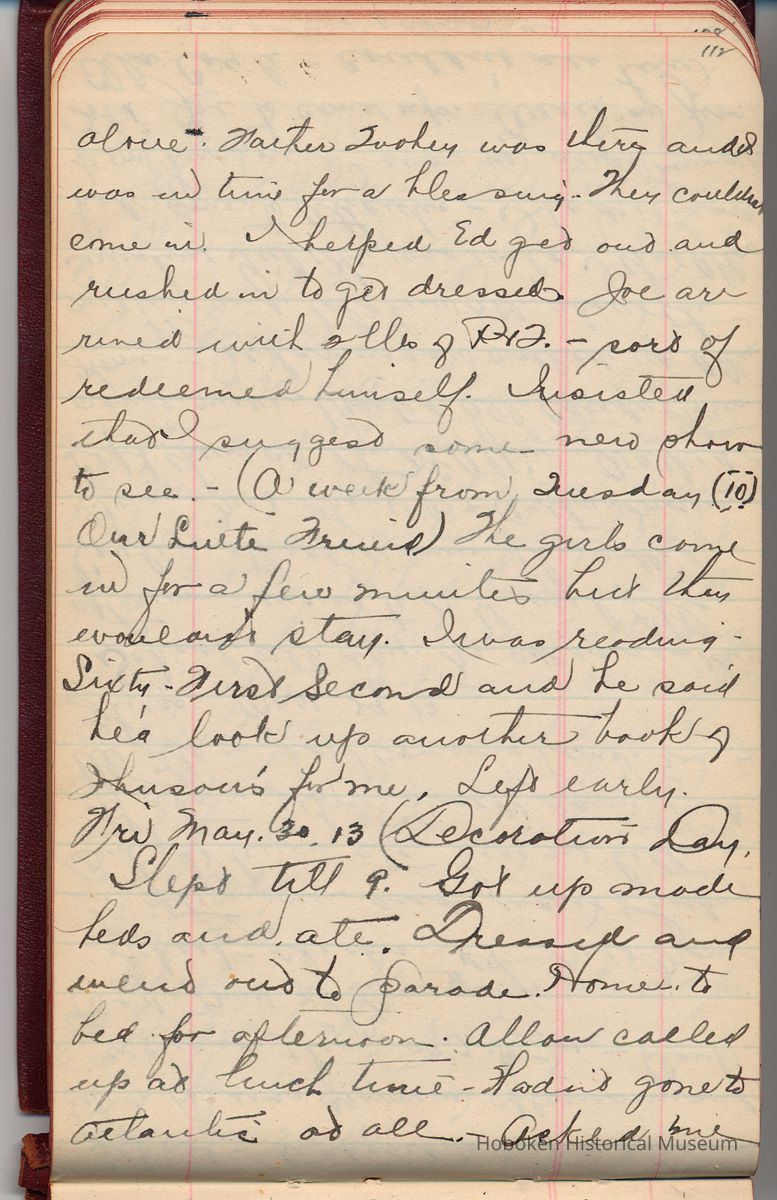 112
alone. Father Twohey was there and I
was in time for a blessing. They couldn't
come in. I helped Ed get out and
rushed in to get dressed. Joe ar
rived with 2 lbs of P&T. - sort of
redeemed himself. Insisted
that I suggest some new show
to see. - (A week from Tuesday (10)
Our Little Friend) The girls come
in for a few minutes but they
wouldn't stay. I was reading -
Sixty-First Second and he said
he'd look up another book of
Johnson's for me. Left early.
Fri May. 30. 13 (Decoration Day.
Slept till 9. Got up made
beds and ate. Dressed and
went out to parade. Home to
bed for afternoon. Allan called
up at lunch time - Hadn't gone to
Atlantic at all. - Asked me
Hoboken Historical Museum